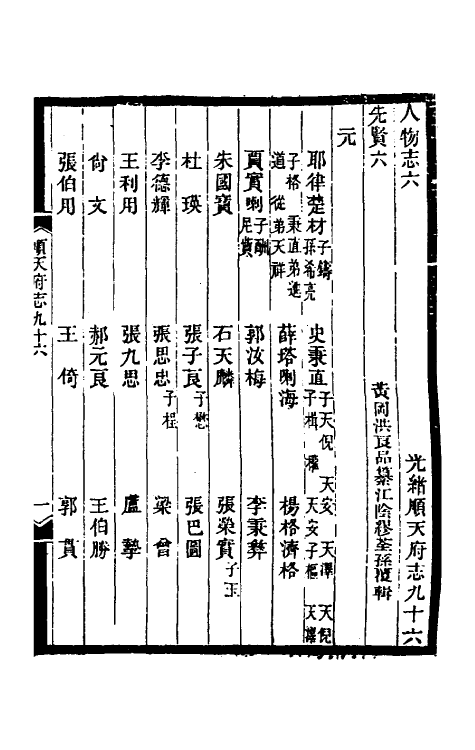 人物志六　光緒順天府志九十六
先賢六　黃岡洪良品纂江陰繆荃孫覆輯
元
耶律楚材子鑄　孫希亮　史秉直子天倪　天安　天澤　天倪子楫　權　天安子樞　天澤
子格　秉直弟進道　從弟天祥　薛塔剌海　楊格濟格
賈實喇子酬尼貲　郭汝梅　李秉彝
朱國寶　石天麟　張榮實子玉
杜瑛　張子良子懋　張巴圖
李德輝　張思忠子桯　梁曾
王利用　張九思　盧摯
尙文　郝元良　王伯勝
張伯用　王倚　郭貫
順天府志九十六　一